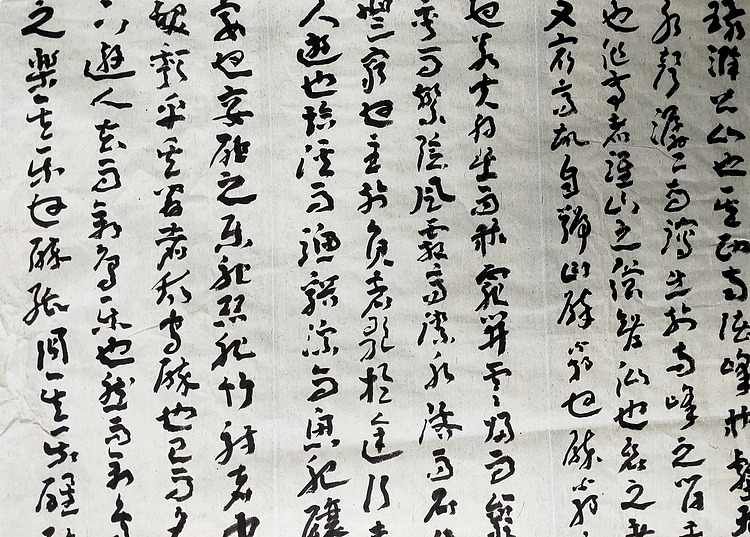 環滁皆山也其西南諸峰林壑尤
水聲潺々而瀉出於兩峰之間
也作亭者誰山之僧智仙也名之者
又最高故自號曰醉翁也醉翁
也若夫日出而林霏開雲歸而巖
秀而繁陰風霜高潔水落而石
無窮也至於負者歌於途行者
人遊也臨溪而漁溪深而魚肥釀
宴也宴酣之樂非絲非竹射者中
頹乎其間者太守醉也已而夕
遊人去而禽鳥樂也然而禽鳥
之樂其樂也醉能同其樂醒